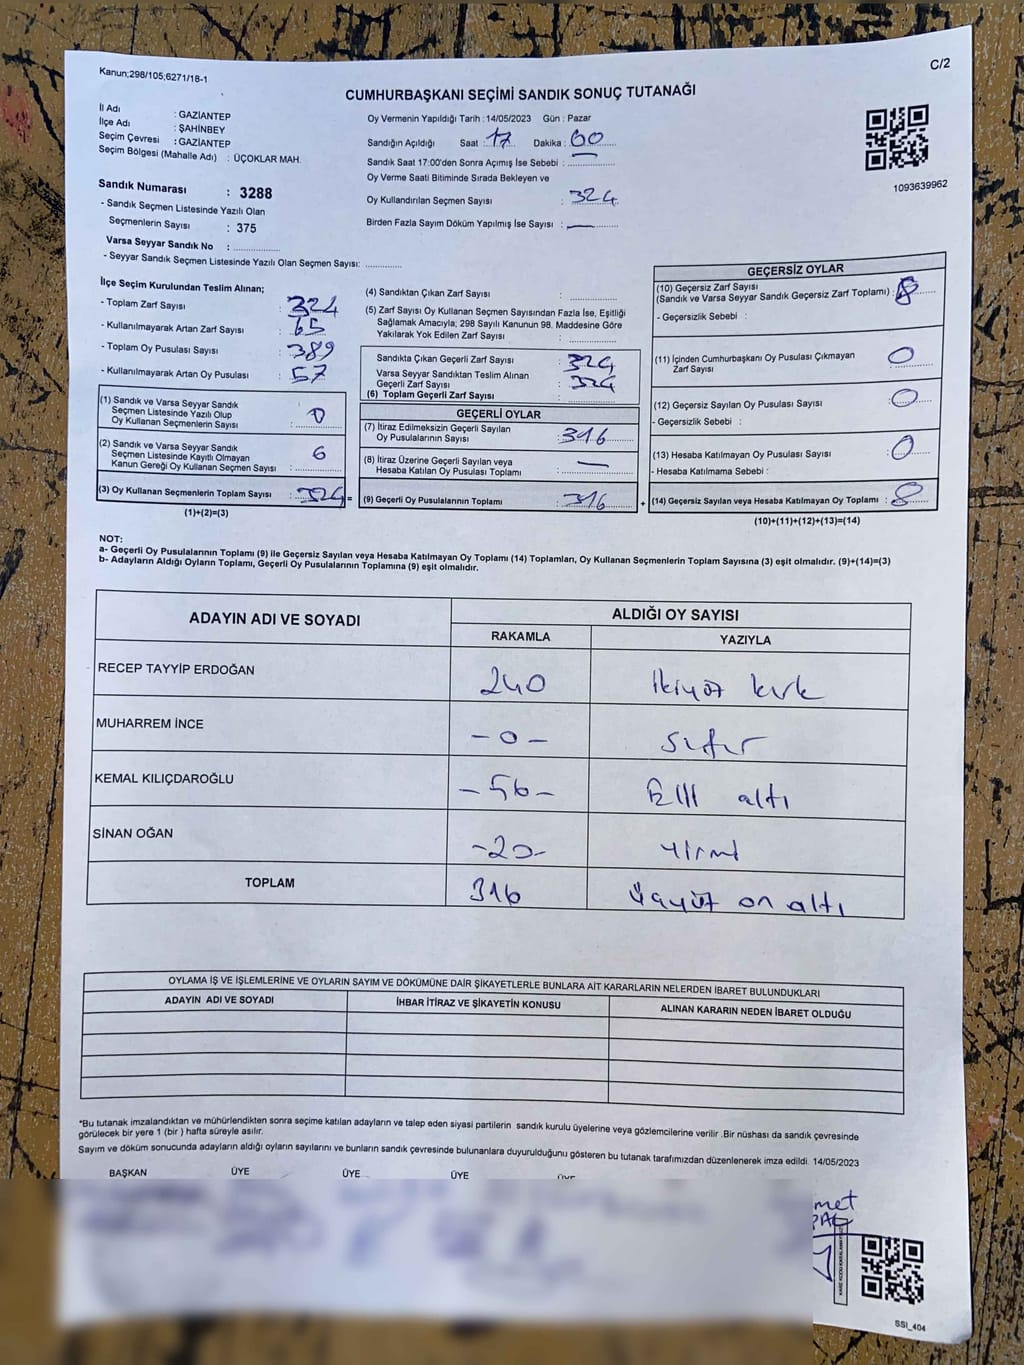 Kanun;298/105;6271/18-1
C/2
CUMHURBAŞKANI SEÇİMİ SANDIK SONUÇ TUTANAĞI
İl Adı : GAZİANTEP
İlçe Adı : ŞAHİNBEY
Seçim Çevresi : GAZİANTEP
Seçim Bölgesi (Mahalle Adı) : ÜÇOKLAR MAH.
Sandık Numarası : 3288
- Sandık Seçmen Listesinde Yazılı Olan
Seçmenlerin Sayısı : 375
Varsa Seyyar Sandık No : ............
- Seyyar Sandık Seçmen Listesinde Yazılı Olan Seçmen Sayısı: ............
Oy Vermenin Yapıldığı Tarih : 14/05/2023 Gün : Pazar
Sandığın Açıldığı Saat : 17 Dakika : 00
Sandık Saat 17:00'den Sonra Açımış İse Sebebi : —
Oy Verme Saati Bitiminde Sırada Bekleyen ve
Oy Kullandırılan Seçmen Sayısı : 324
Birden Fazla Sayım Döküm Yapılmış İse Sayısı : —
1093639962
İlçe Seçim Kurulundan Teslim Alınan;
- Toplam Zarf Sayısı : 324
- Kullanılmayarak Artan Zarf Sayısı : 65
- Toplam Oy Pusulası Sayısı : 389
- Kullanılmayarak Artan Oy Pusulası : 57
(1) Sandık ve Varsa Seyyar Sandık
Seçmen Listesinde Yazılı Olup
Oy Kullanan Seçmenlerin Sayısı : 0
(2) Sandık ve Varsa Seyyar Sandık
Seçmen Listesinde Kayıtlı Olmayan
Kanun Gereği Oy Kullanan Seçmen Sayısı : 6
(3) Oy Kullanan Seçmenlerin Toplam Sayısı : 324 =
(1)+(2)=(3)
(4) Sandıktan Çıkan Zarf Sayısı : ............
(5) Zarf Sayısı Oy Kullanan Seçmen Sayısından Fazla İse, Eşitliği
Sağlamak Amacıyla; 298 Sayılı Kanunun 98. Maddesine Göre
Yakılarak Yok Edilen Zarf Sayısı : ............
Sandıkta Çıkan Geçerli Zarf Sayısı : 324
Varsa Seyyar Sandıktan Teslim Alınan
Geçerli Zarf Sayısı : 324
(6) Toplam Geçerli Zarf Sayısı : ............
GEÇERLİ OYLAR
(7) İtiraz Edilmeksizin Geçerli Sayılan
Oy Pusulalarının Sayısı : 316
(8) İtiraz Üzerine Geçerli Sayılan veya
Hesaba Katılan Oy Pusulası Toplamı : —
(9) Geçerli Oy Pusulalarının Toplamı : 316 +
GEÇERSİZ OYLAR
(10) Geçersiz Zarf Sayısı
(Sandık ve Varsa Seyyar Sandık Geçersiz Zarf Toplamı) : 8
- Geçersizlik Sebebi :
(11) İçinden Cumhurbaşkanı Oy Pusulası Çıkmayan
Zarf Sayısı : 0
(12) Geçersiz Sayılan Oy Pusulası Sayısı : 0
- Geçersizlik Sebebi :
(13) Hesaba Katılmayan Oy Pusulası Sayısı : 0
- Hesaba Katılmama Sebebi :
(14) Geçersiz Sayılan veya Hesaba Katılmayan Oy Toplamı : 8
(10)+(11)+(12)+(13)=(14)
NOT:
a- Geçerli Oy Pusulalarının Toplamı (9) ile Geçersiz Sayılan veya Hesaba Katılmayan Oy Toplamı (14) Toplamları, Oy Kullanan Seçmenlerin Toplam Sayısına (3) eşit olmalıdır. (9)+(14)=(3)
b- Adayların Aldığı Oyların Toplamı, Geçerli Oy Pusulalarının Toplamına (9) eşit olmalıdır.
ADAYIN ADI VE SOYADI ALDIĞI OY SAYISI
RAKAMLA YAZIYLA
RECEP TAYYİP ERDOĞAN 240 İkiyüz kırk
MUHARREM İNCE -0- sıfır
KEMAL KILIÇDAROĞLU -56- Elli altı
SİNAN OĞAN -20- yirmi
TOPLAM 316 üçyüz on altı
OYLAMA İŞ VE İŞLEMLERİNE VE OYLARIN SAYIM VE DÖKÜMÜNE DAİR ŞİKAYETLERLE BUNLARA AİT KARARLARIN NELERDEN İBARET BULUNDUKLARI
ADAYIN ADI VE SOYADI İHBAR İTİRAZ VE ŞİKAYETİN KONUSU ALINAN KARARIN NEDEN İBARET OLDUĞU
*Bu tutanak imzalandıktan ve mühürlendikten sonra seçime katılan adayların ve talep eden siyasi partilerin sandık kurulu üyelerine veya gözlemcilerine verilir .Bir nüshası da sandık çevresinde
görülecek bir yere 1 (bir ) hafta süreyle asılır.
Sayım ve döküm sonucunda adayların aldığı oyların sayılarını ve bunların sandık çevresinde bulunanlara duyurulduğunu gösteren bu tutanak tarafımızdan düzenlenerek imza edildi. 14/05/2023
BAŞKAN ÜYE ÜYE ÜYE
met
SSI_404